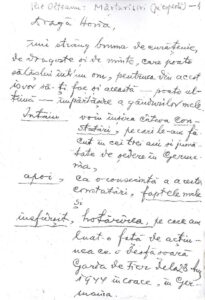 Dragă Horia,
îmi strâng bruma de cuviștenie,
de dragoste și de minte, care poate
sălășlui într'un om, pentruca din acest
isvor să-ți fac și această — poate ul-
timă — împărtășire a gândurilor mele.
Întâiu voiu înșira câteva cons-
tatări, pe cari le-am fă-
cut în cei trei ani și jumă-
tate de ședere în Germa-
nia,
apoi, ca o consecință a acestor
constatări, faptele mele
și
însfârșit, hotărîrea, pe care am
luat-o față de acțiu-
nea ce o desfășoară
Garda de Fier dela 23 Aug.
1944 încoace, în Ger-
mania.